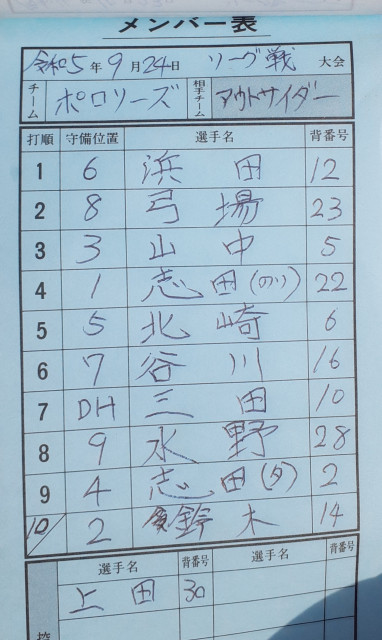 メンバー表
令和5年9月24日 リーグ戦 大会
チーム ポロリーズ 相手チーム アウトサイダー
打順 守備位置 選手名 背番号
1 6 浜田 12
2 8 弓場 23
3 3 山中 5
4 1 志田(のり) 22
5 5 北崎 6
6 7 谷川 16
7 DH 三田 10
8 9 水野 28
9 4 志田(ダ) 2
10 2 鈴木 14
控 選手名 背番号 選手名 背番号
上田 30